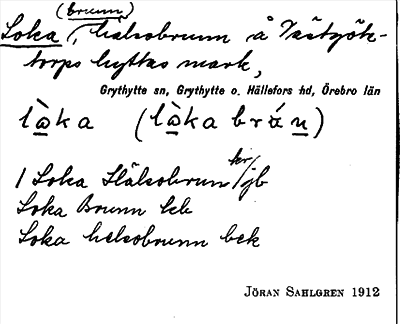 (brunn)
Loka, hälsobrunn å Saxtjärn-
torps hyttas mark,
Grythytte sn, Grythytte o. Hällefors hd, Örebro län
lo̱ka (lo̱ka bránn)
1 Loka Hälsobrun kr/jb
Loka Brunn kb
Loka helsobrunn bek
JÖRAN SAHLGREN 1912